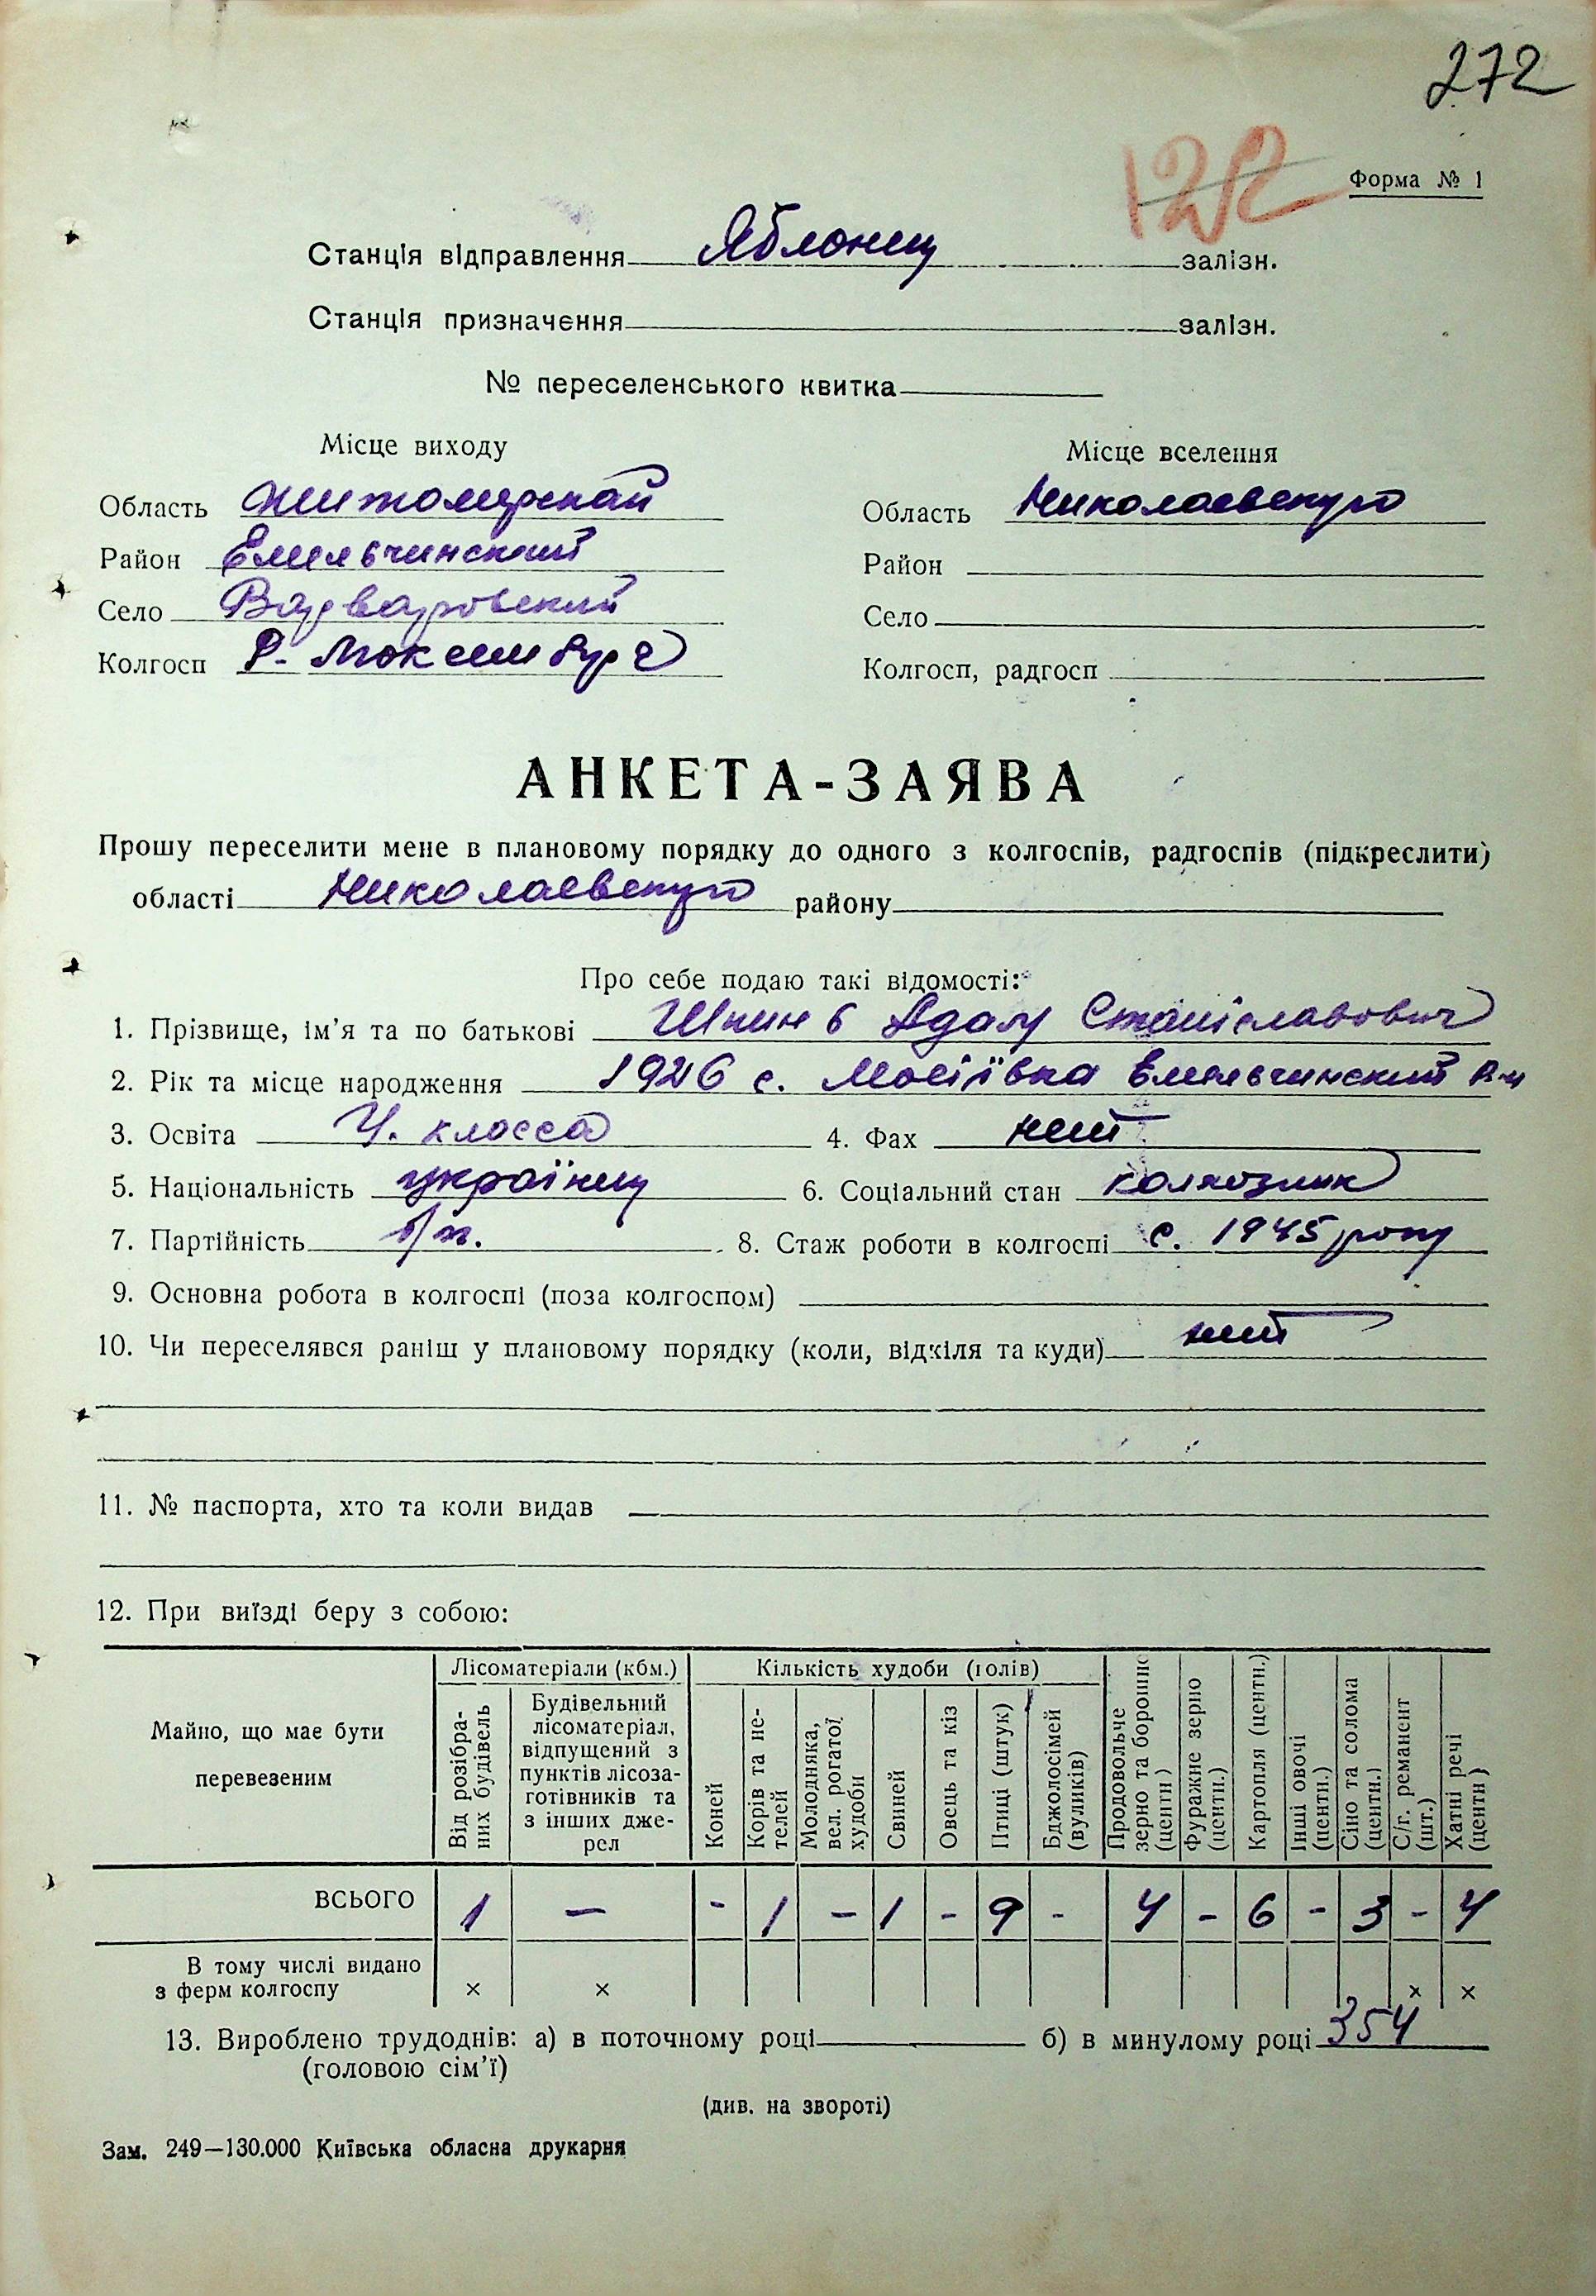 272
122
Форма № 1
Станція відправлення Яблонец залізн.
Станція призначення залізн.
№ переселенського квитка
Місце виходу
Місце вселення
Область Житомирская
Область Николаевскую
Район Емельчинский
Район
Село
Село
Колгосп Р. Люксембург
Колгосп, радгосп
АНКЕТА-ЗАЯВА
Прошу переселити мене в плановому порядку до одного з колгоспів, радгоспів (підкреслити)
області Николаевскую району
Про себе подаю такі відомості:
1. Прізвище, ім'я та по батькові Адам Станіславович
2. Рік та місце народження 1926 с. Мосіївка Емельчинский р-н
3. Освіта 4. класса 4. Фах нет
5. Національність українец 6. Соціальний стан колхозник
7. Партійність б/п. 8. Стаж роботи в колгоспі с. 1945 року
9. Основна робота в колгоспі (поза колгоспом)
10. Чи переселявся раніш у плановому порядку (коли, відкіля та куди) нет
11. № паспорта, хто та коли видав
12. При виїзді беру з собою:
Майно, що має бути перевезеним
Лісоматеріали (кбм.)
Кількість худоби (голів)
Від розібра-
них будівель
Будівельний
лісоматеріал,
відпущений з
пунктів лісоза-
готівників та
з інших дже-
рел
Коней
Корів та не-
телей
Молодняка,
вел. рогатої
худоби
Свиней
Овець та кіз
Птиці (штук)
Бджолосімей
(вуликів)
Продовольче
зерно та борошно
(центн)
Фуражне зерно
(центн.)
Картопля (центн.)
Інші овочі
(центн.)
Сіно та солома
(центн.)
С/г. реманент
(шт.)
Хатні речі
(центн)
ВСЬОГО 1 — - 1 - 1 - 9 - 4 - 6 - 3 - 4
В тому числі видано
з ферм колгоспу × × × ×
13. Вироблено трудоднів: а) в поточному році б) в минулому році 354
(головою сім'ї)
(див. на звороті)
Зам. 249—130.000 Київська обласна друкарня